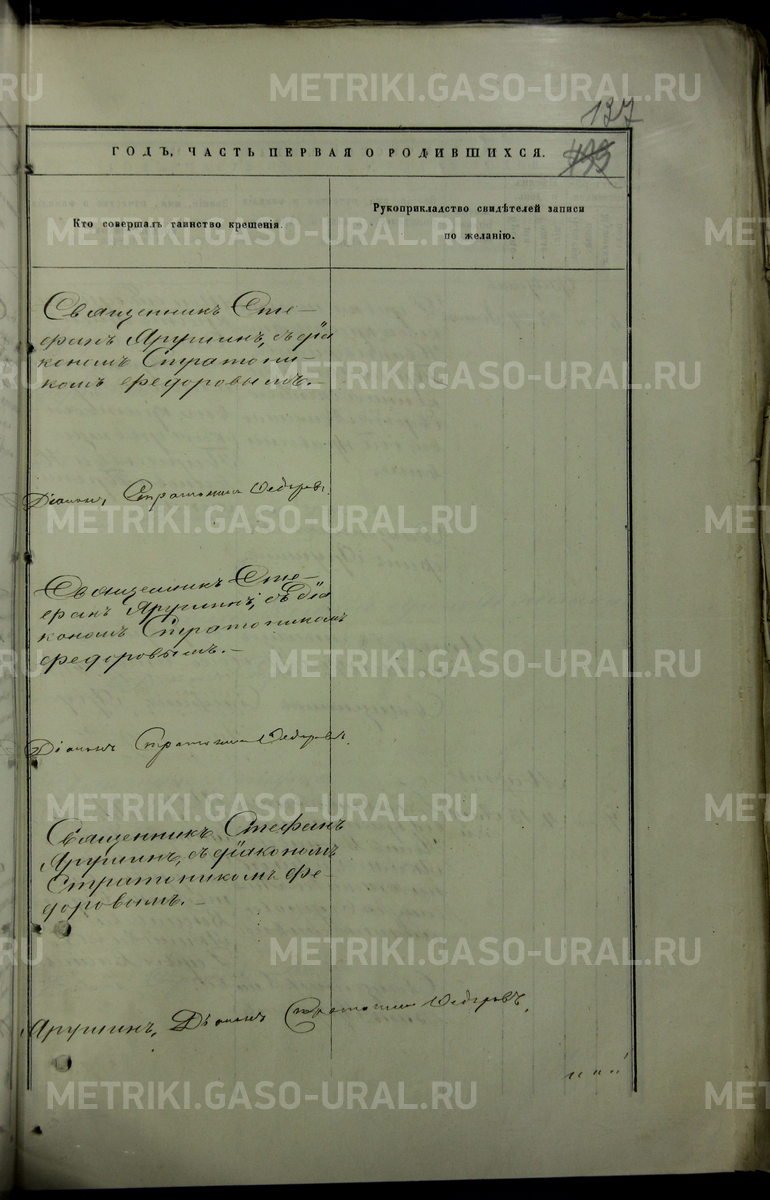 127
433
ГОДЪ, ЧАСТЬ ПЕРВАЯ О РОДИВШИХСЯ.
Кто совершалъ таинство крещенія.
Рукоприкладство свидѣтелей записи
по желанію.
Священникъ Сте-
фанъ Ярушинъ, съ діа
кономъ Стратони-
комъ Федоровымъ.-
Діаконъ, Стратоникъ Федоровъ.
Священникъ Сте-
фанъ Ярушинъ, съ діа
кономъ Стратоникомъ
Федоровымъ.-
Діаконъ Стратоникъ Федоровъ.
Священникъ Стефанъ
Ярушинъ, съ діакономъ
Стратоникомъ Фе-
доровымъ.-
Ярушинъ, Діаконъ Стратоникъ Федоровъ.
METRIKI.GASO-URAL.RU